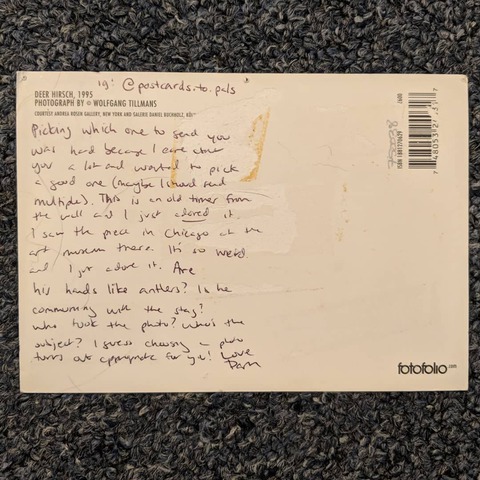 ig: @postcards.to.pals
DEER HIRSCH, 1995
PHOTOGRAPH BY © WOLFGANG TILLMANS
COURTESY ANDREA ROSEN GALLERY, NEW YORK AND GALERIE DANIEL BUCHHOLZ, KÖLN
Picking which one to send you
was hard because I care about
you a lot and wanted to pick
a good one (maybe I should send
multiple). This is an old timer from
the wall and I just adored it.
I saw the piece in Chicago at the
art museum there. It's so weird
and I just adore it. Are
his hands like antlers? Is he
communing with the stag?
Who took the photo? Who's the
subject? I guess choosing a photo
turns out appropriate for you! Love
Pam
F600
ISBN 1881270629
7 48053 82713
fotofolio.com